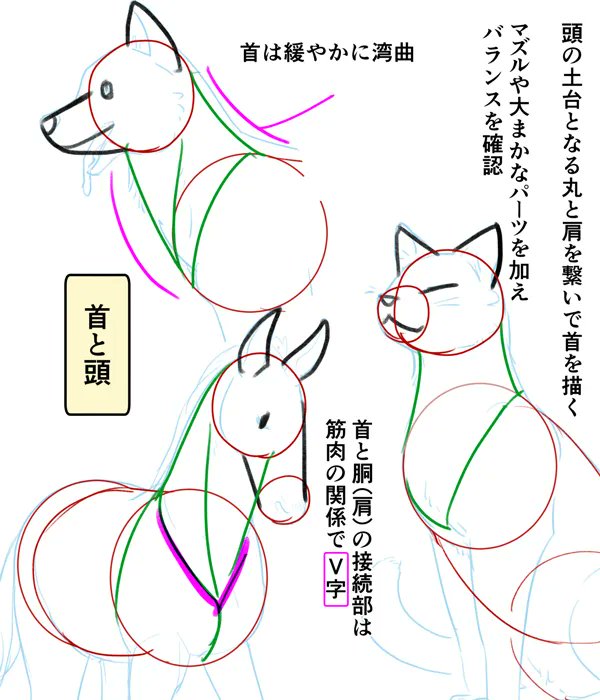 頭の土台となる丸と肩を繋いで首を描く
マズルや大まかなパーツを加え
バランスを確認
首は緩やかに湾曲
首と頭
首と胴(肩)の接続部は
筋肉の関係でV字